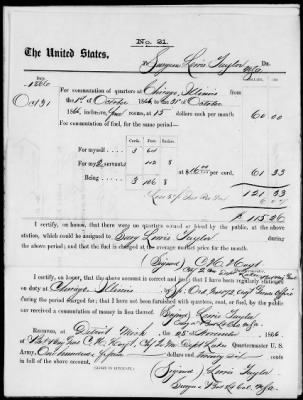 No. 21.
The United States,
To Surgeon Lewis Taylor USA Dr.
Date.
1866
Octr 31
For commutation of quarters at Chicago, Illinois from
the 1st of October 1866, to 31st of October
1866, inclusive, four rooms, at 15 dollars each per month 60 00
For commutation of fuel, for the same period—
Cords. Feet.
For myself 3
For my 2 servants 8
Being 3 106 8 at $16.00 per cord, 61 33
121 33
6 07
$ 115.26
I certify, on honor, that there were no quarters owned or hired by the public, at the above
station, which could be assigned to Surg Lewis Taylor during
the above period; and that the fuel is charged at the average market price for the month.
(Signed) C. H. Hoyt
I certify, on honor, that the above account is correct and just; that I have been regularly stationed
on duty at Chicago Illinois
during the period charged for; that I have not been furnished with quarters, rent, or fuel, by the public, nor received
a commutation of money in lieu thereof.
(Signed) Lewis Taylor
Received, at Detroit Mich the 25 November 1866,
of C. H. Hoyt, Quartermaster U. S.
Army, One hundred & fifteen dollars and twenty six cents,
(Signed) Lewis Taylor